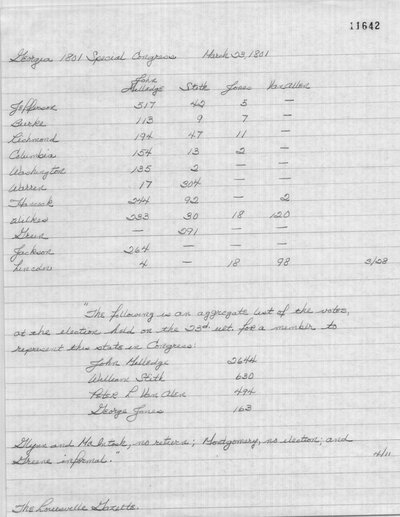 11642
Georgia 1801 Special Congress March 23, 1801
John Milledge Stith Jones Van Allen
Jefferson 517 42 5 —
Burke 113 9 7 —
Richmond 194 47 11 —
Columbia 154 13 2 —
Washington 135 2 — —
Warren 17 304 — —
Hancock 244 92 — 2
Wilkes 233 30 18 120
Green — 291 — —
Jackson 264 — — —
Lincoln 4 — 18 98 3/28
"The following is an aggregate list of the votes,
at the election held on the 23rd ult. for a member to
represent this state in Congress:
John Milledge 2644
William Stith 630
Peter L Van Alen 494
George Jones 163
Glynn and McIntosh, no return; Montgomery, no election; and
Greene informal." 4/11
The Louisville Gazette.